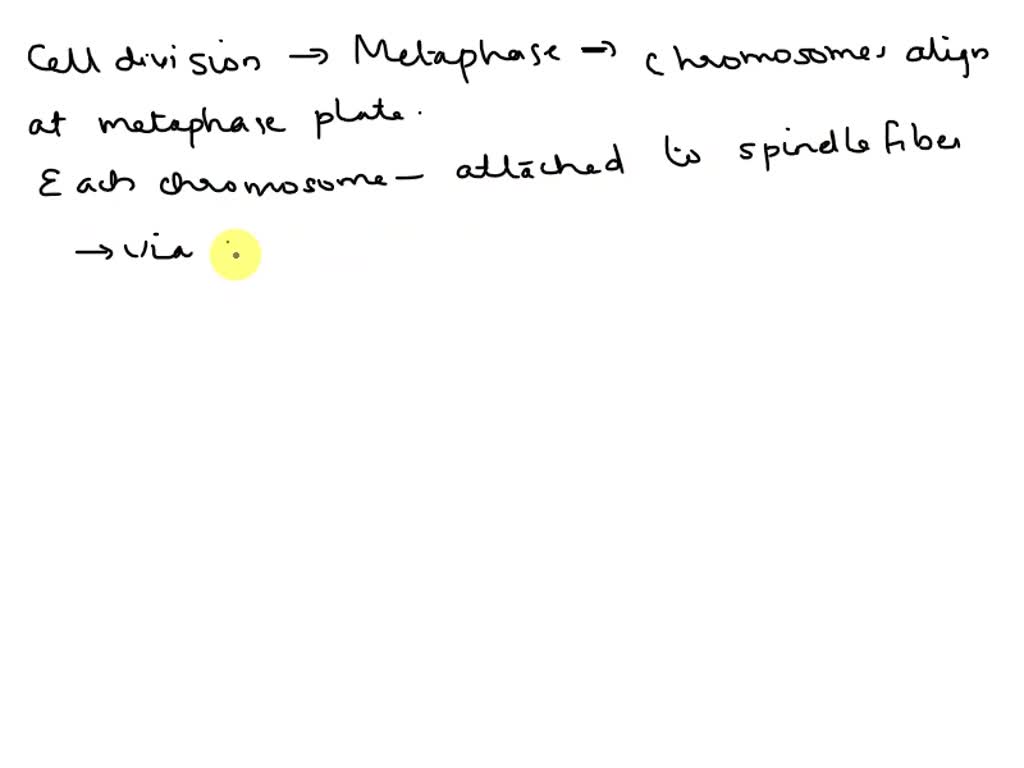 Cell division → Metaphase → chromosomes align
at metaphase plate.
Each chromosome - attached to spindle fiber
→ via